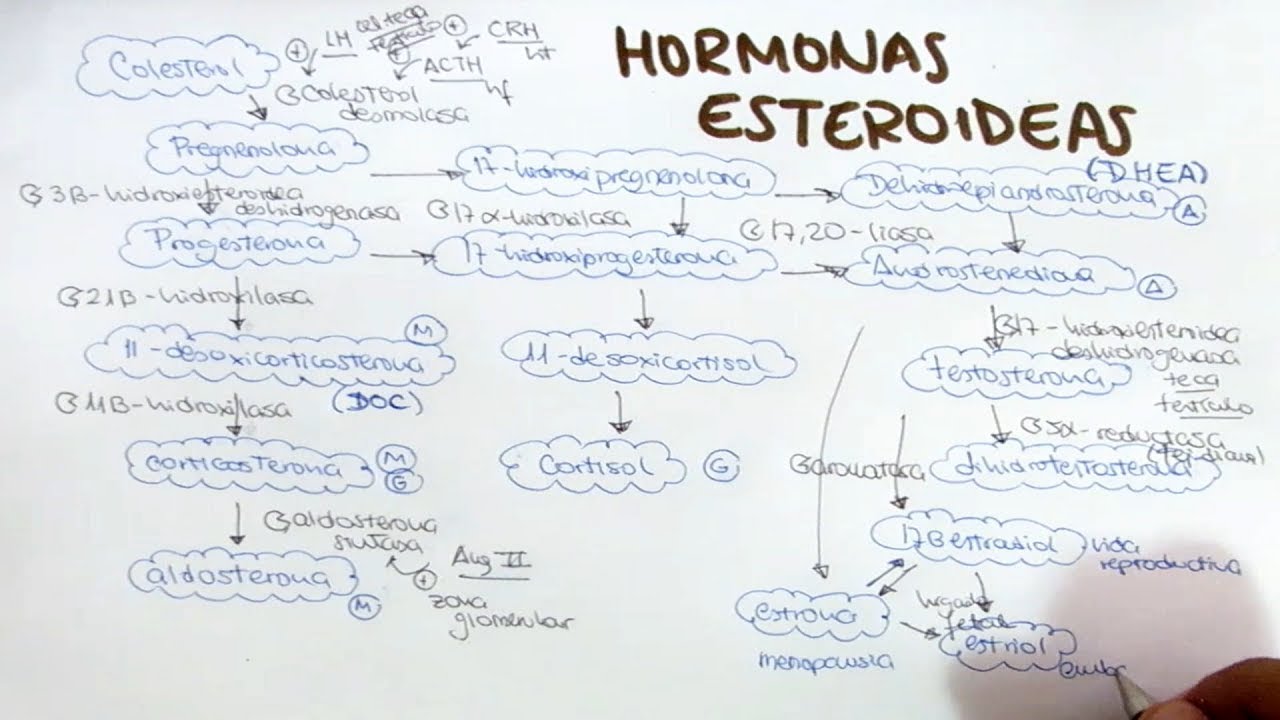 HORMONAS
ESTEROIDEAS
Colesterol
+ LH
cel. teca
testículo
+ CRH
ht
+ ACTH
hf
Colesterol
desmolasa
Pregnenolona
17-hidroxipregnenolona
(DHEA)
Dehidroepiandrosterona
A
3B-hidroxiesteroidea
deshidrogenasa
17α-hidroxilasa
17,20-liasa
Progesterona
17-hidroxiprogesterona
Androstenediona
A
21B-hidroxilasa
17-hidroxiesteroidea
deshidrogenasa
teca
testículo
M
11-desoxicorticosterona
(DOC)
11-desoxicortisol
testosterona
11B-hidroxilasa
5α-reductasa
(tej. diana)
corticosterona
M
G
Cortisol
G
aromatasa
dihidrotestosterona
aldosterona
sintasa
Ang II
+ zona
glomerular
17B estradiol
vida
reproductiva
aldosterona
M
estrona
menopausia
hígado
fetal
estriol
emba